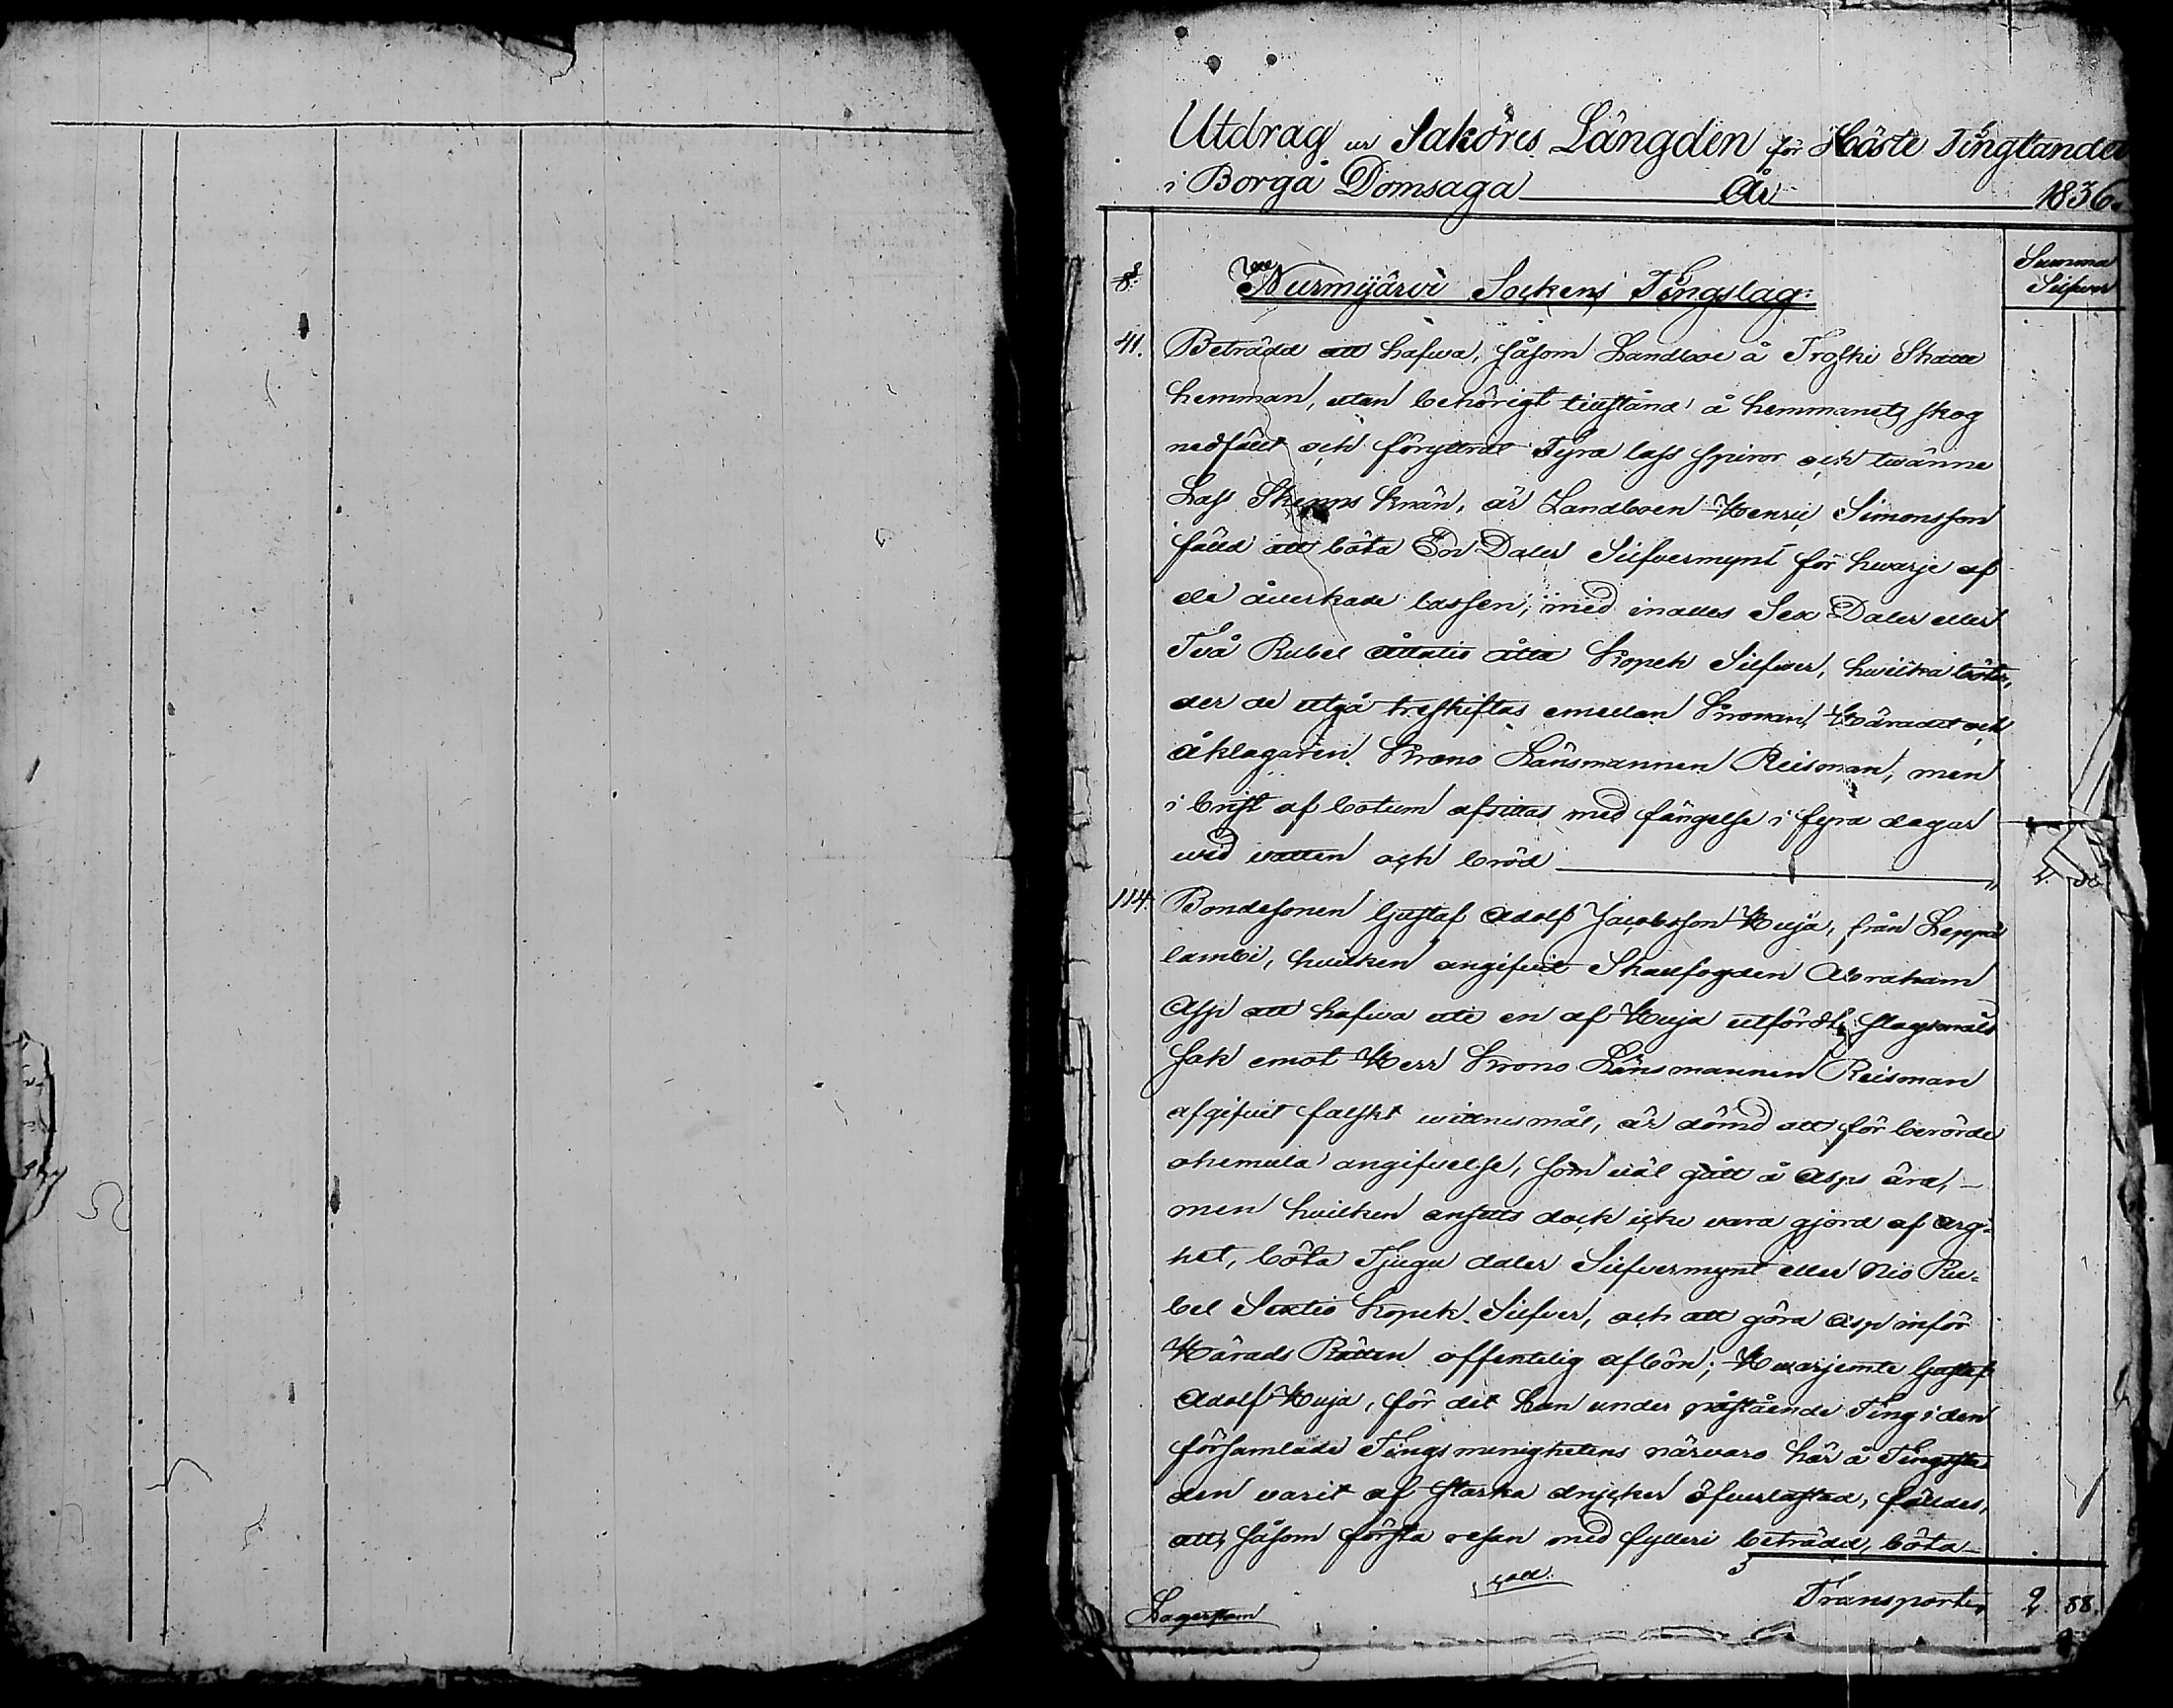 Utdrag ur Saköres Längden för Höste Tingtanden
i Borgå Domsaga År 1836.
§
Nurmijärvi Sockens Tingslag.
Summa
Silfver
41. Beträdd att hafwa, såsom Landboe å Troski Skatte
hemman, utan behörigt tillstånd å hemmanets skog
nedfält och förytrat Fyra lass spiror och twänne
Lass Skepps knän, är Landboen Henric Simonsson
fälld att böta En Daler Silfvermynt för hwarje af
de åverkade lassen, med inalles Sex Daler eller
Två Rubel åttatio åtta Kopek Silfver, hwilka böter,
der de utgå treskiftas emellan Kronan, Häradet och
åklagaren Krono Länsmannen Reisman, men
i brist af botum afsittas med fängelse i fyra dagar
wid vatten och bröd
2. 88.
114. Bondesonen Gustaf Adolf Jacobsson Huja, från Leppä
lambi, hvilken angifvit Skallfogden Abraham
Asp att hafwa uti en af Huja utförd slagsmåls
sak emot Herr Krono Länsmannen Reisman
afgifvit falskt wittnesmål, är dömd att för berörde
ohemula angifvelse, som väl gått å Asps ära, -
men hvilken ansetts dock icke vara gjord af arg-
het, böta Tjugu daler Silfvermynt eller Nio Ru-
bel Sextio Kopek Silfver, och att göra Asp inför
Härads Rätten offentelig afbön; Hwarjemte Gustaf
Adolf Huja, för det han under påstående Ting i den
församlade Tings menighetens närvaro här å Tingsstä
den varit af starka drycker öfverlastad, fälldes,
att, såsom första resan med fylleri beträdd, böta
Transport 2 88.
Lagerstam